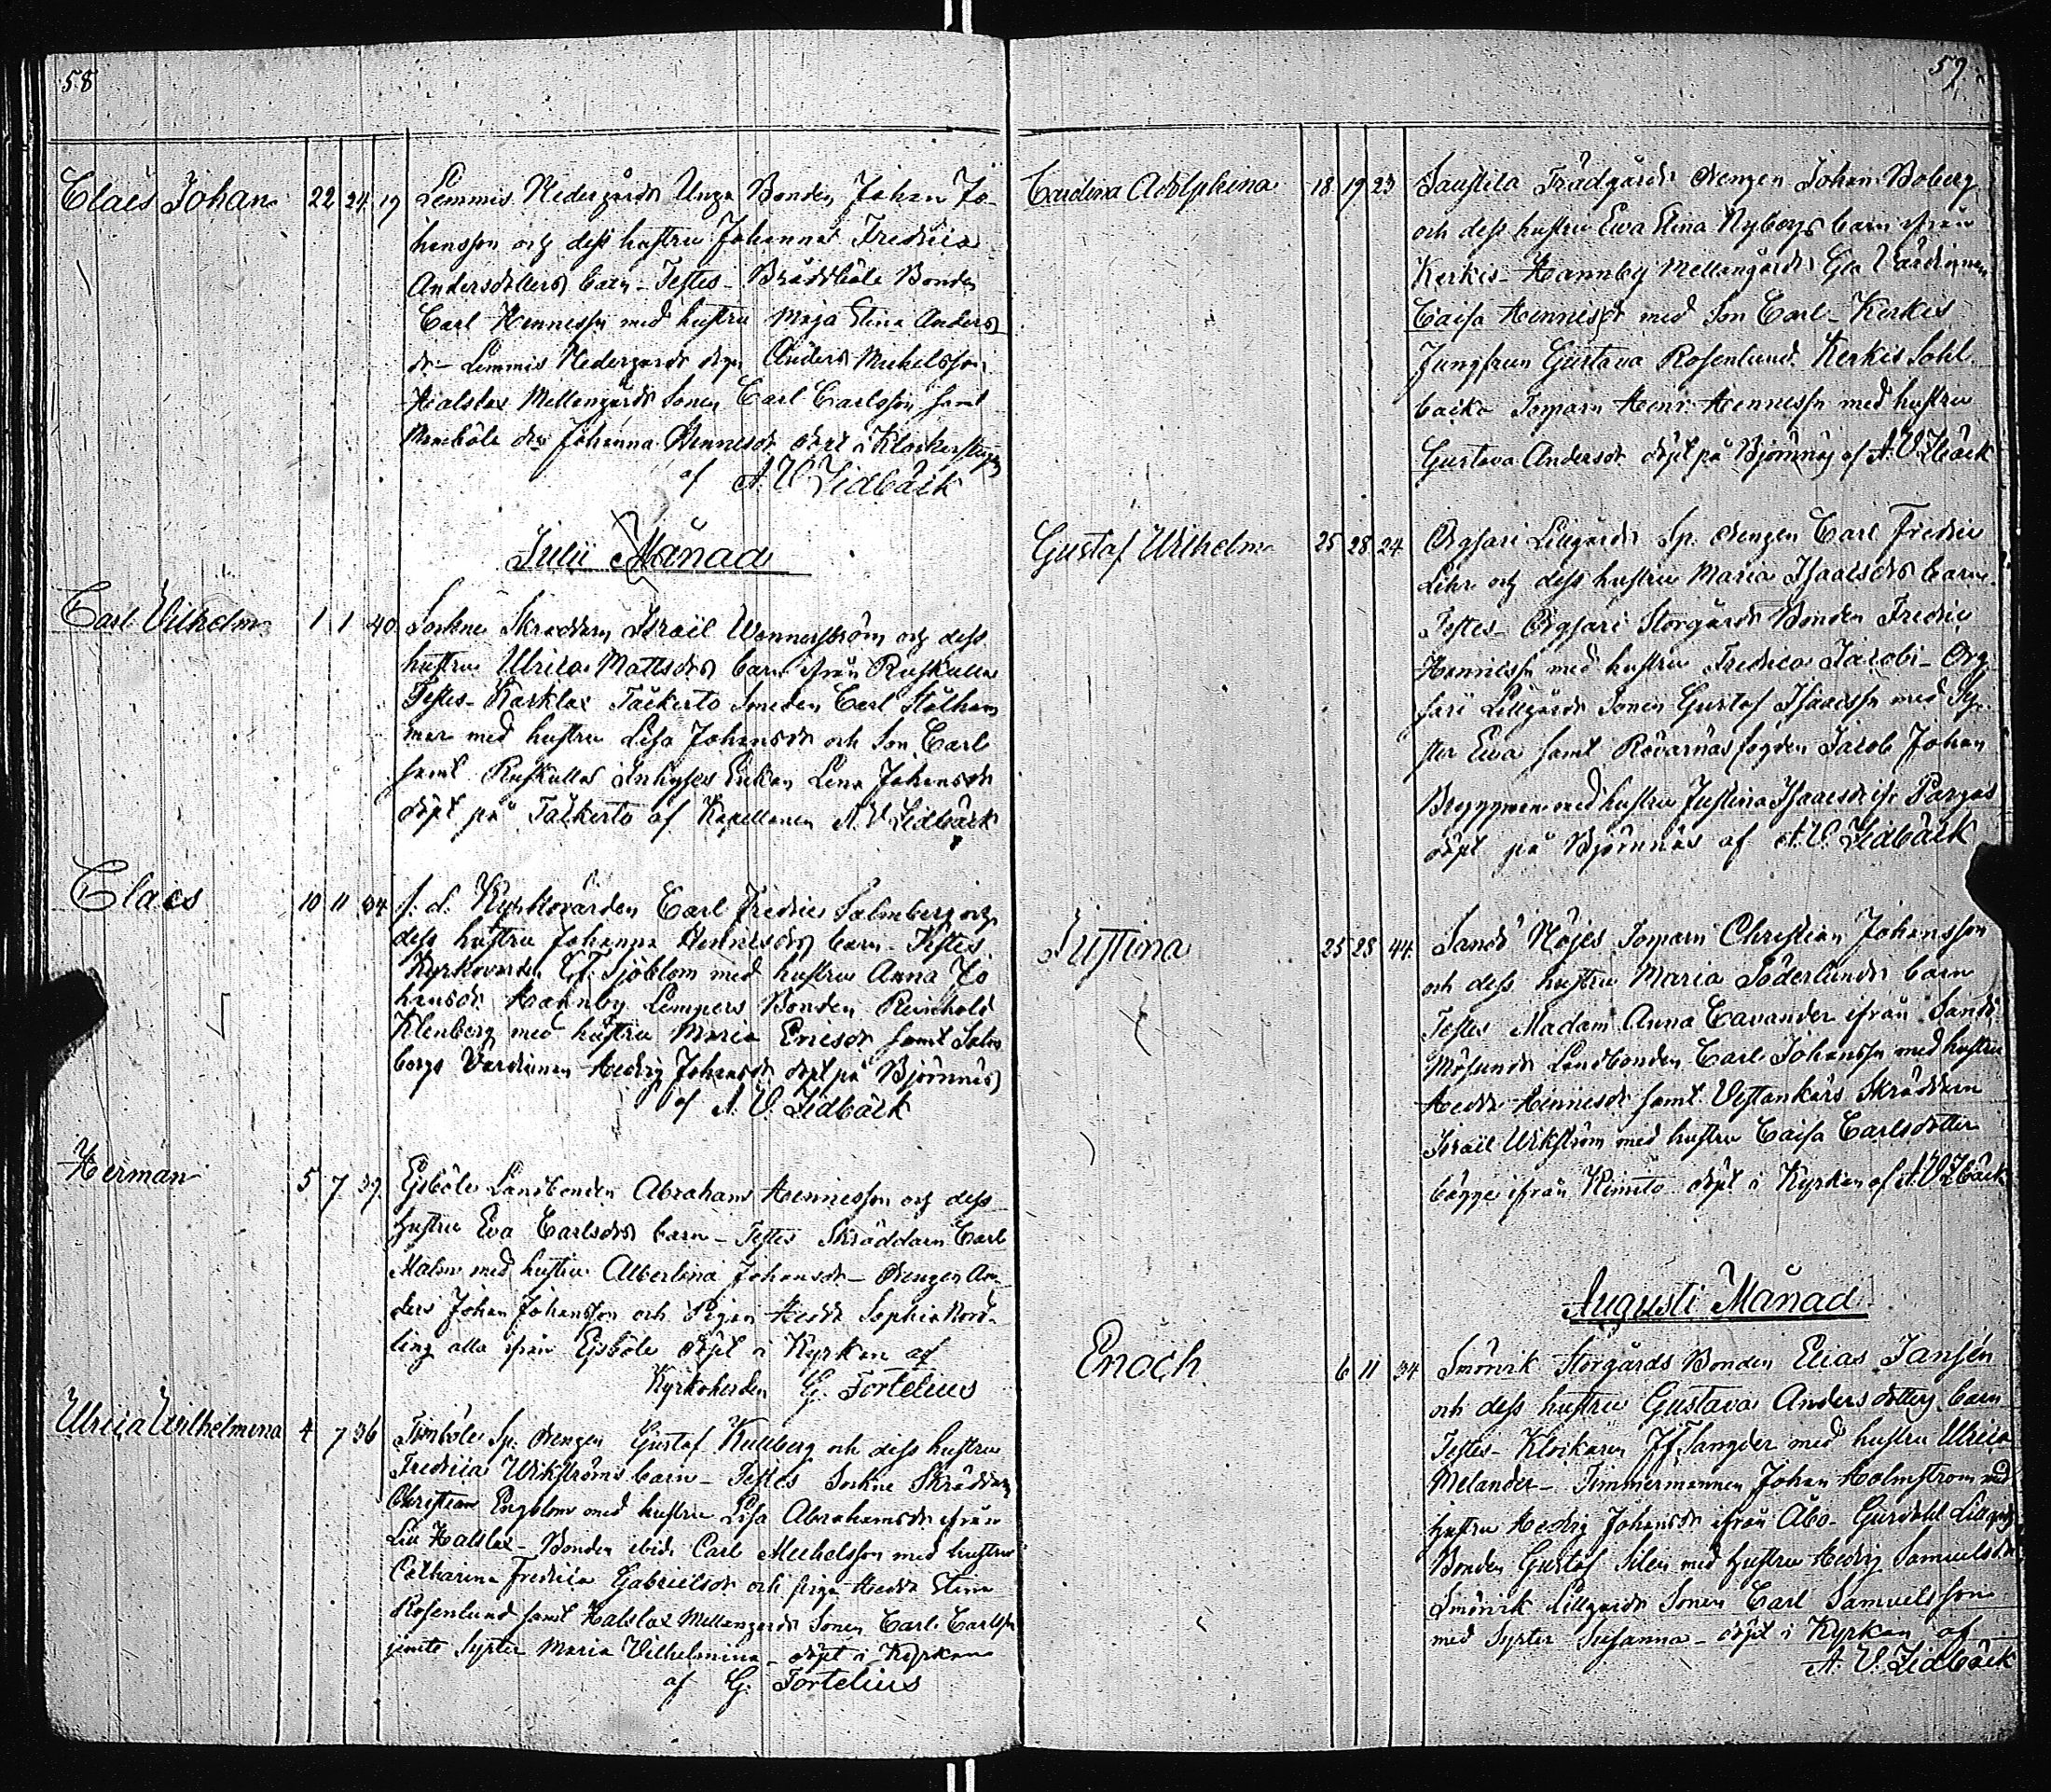 58
Claës Johan 22 24 19 Lemmis Nedergårds Unga Bonden Johan Jo-
hansson och dess hustru Johanna Fredrica
Andersdotters barn - Testes - Bräddböle Bonden
Carl Hennessn med hustru Maja Stina Anders
dr - Lemmis Nedergårds Anders Michelsson
Halslax Mellangårds Sonen Carl Carlsson samt
Johanna Hennesdr döpt i Klockarstugan
af A. V. Lidbäck
Julii Månad
Carl Vilhelm 1 1 40 Sockne Skräddarn Israël Wennerström och dess
hustru Ulrica Mattsdrs barn ifrån Ruskulla
Testes - Karklax Täckerto Smeden Carl Stålham
mar med hustru Lisa Johansdr och Son Carl
samt Ruskulla Inhyses Enkan Lena Johansdr
döpt på Täckerto af Kapellanen A. V. Lidbäck
Claës 10 11 34 f. d. Kyrkovärden Carl Fredric Salmberg och
dess hustru Johanna Hennesdrs barn - Testes
Kyrkovärden C. F. Sjöblom med hustru Anna Jo
hansdr Hamnby Lempers Bonden Reinhold
Klenberg med hustru Maria Ericsdr samt Salm
bergs Värdinnan Hedvig Johansdr döpt på Björnnäs
af A. V. Lidbäck
Herman 5 7 39 Ejsböle Landbonden Abraham Hennesson och dess
hustru Eva Carlsdrs barn - Testes Skräddarn Carl
Malm med hustru Albertina Johansdr - Drengen An-
ders Johan Johansson och Pigan Hedda Sophia Nord-
ling alla ifrån Ejsböle döpt i Kyrkan af
Kyrkoherden G. Tortelius
Ulrica Wilhelmina 4 7 36 Timböle Sp. Drengen Gustaf Kulberg och dess hustru
Fredrica Wikströms barn - Testes Sockne Skräddarn
Christian Engblom med hustru Lisa Abrahamsdr ifrån
Halslax - Bonden ibid. Carl Michelsson med hustru
Catharina Fredrica Gabrielsdr och piga Hedda Stina
Rosenlund samt Halslax Mellangårds Sonen Carl Carlssn
jemte Syster Maria Vilhelmina - döpt i Kyrkan
af G. Tortelius
59
Carolina Adolphina 18 19 23 Trädgårds Drengen Johan Boberg
och dess hustru Ewa Stina Nybergs barn ifrån
Kerkis - Hamnby Mellangårds Gla Värdinnan
Caisa Hennesdr med Son Carl - Kerkis
Jungfrun Gustava Rosenlund Kerkis Sohl
backa Torparn Henr. Hennessn med hustru
Gustava Andersdr döpt på Björnnäs af A. V. Lidbäck
Gustaf Wilhelm 25 28 24 Lillgårds Sp. Drengen Carl Fredric
Lihr och dess hustru Maria Isaacsdrs barn.
Testes - Storgårds Bonden Fredric
Hennessn med hustru Fredrica Jacobi - Org
sari Lillgårds Sonen Gustaf Isaacssn med Sy-
ster Ewa samt Rävarnäs fogden Jacob Johan
med hustru Justina Isaacsdr ifr. Pargas
döpt på Björnnäs af A. V. Lidbäck
Justina 25 28 44 Sandö Nöjes Torparn Christian Johansson
och dess hustru Maria Söderlunds barn
Testes Madam Anna Cavander ifrån Sandö
Landbonden Carl Johanssn med hustru
Hedda Hennesdr samt Vestankärs Skräddarn
Israël Wikström med hustru Caisa Carlsdotter
bägge ifrån Kimito döpt i Kyrkan af A. V. Lidbäck
Augusti Månad
Enoch 6 11 34 Smörvik Storgårds Bonden Elias Jansén
och dess hustru Gustava Andersdotters barn
Testes - Klockaren Tamgder med hustru Ulrica
Melander - Timmermannen Johan Holmström med
hustru Hedvig Johansdr ifrån Åbo - Gursböle Lillgårds
Bonden Gustaf Silen med hustru Hedvig Samuelsdr
Smörvik Lillgårds Sonen Carl Samuelsson
med Syster Susanna - döpt i Kyrkan af
A. V. Lidbäck